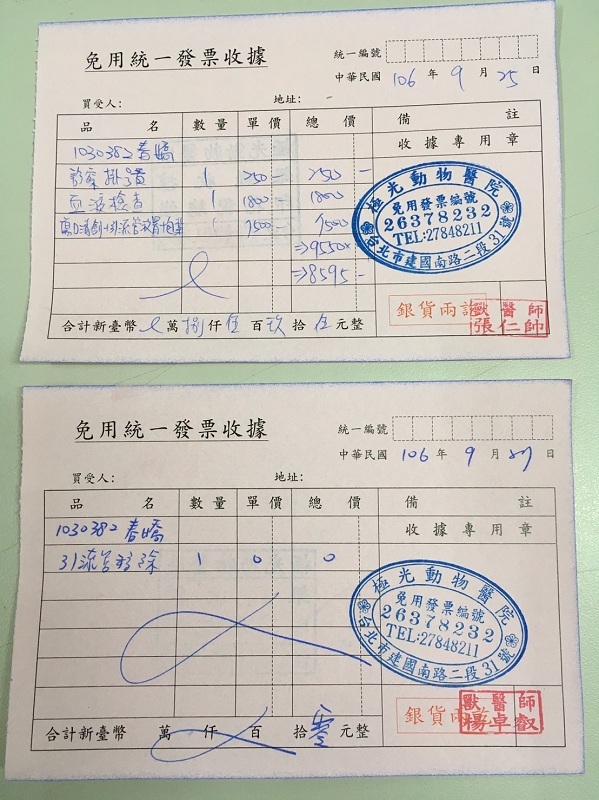 免用統一發票收據
統一編號
中華民國 106 年 9 月 25 日
買受人：
地址：
品名 數量 單價 總價 備註
收據專用章
1030382 春嬌
診察掛號費 1 250- 250-
血液檢查 1 1800 1800
1 7500- 7500
⇒9550×
⇒8595-
極光動物醫院
免用發票編號
26378232
TEL:27848211
台北市建國南路二段31號
銀貨兩訖
獸醫師
張仁帥
合計新臺幣 萬捌仟伍百玖拾伍元整
免用統一發票收據
統一編號
中華民國 106 年 9 月 日
買受人：
地址：
品名 數量 單價 總價 備註
收據專用章
1030382 春嬌
引流管移除 1 0 0
極光動物醫院
免用發票編號
26378232
TEL:27848211
台北市建國南路二段31號
銀貨兩訖
獸醫師
楊卓叡
合計新臺幣 萬 仟 百 拾零元整